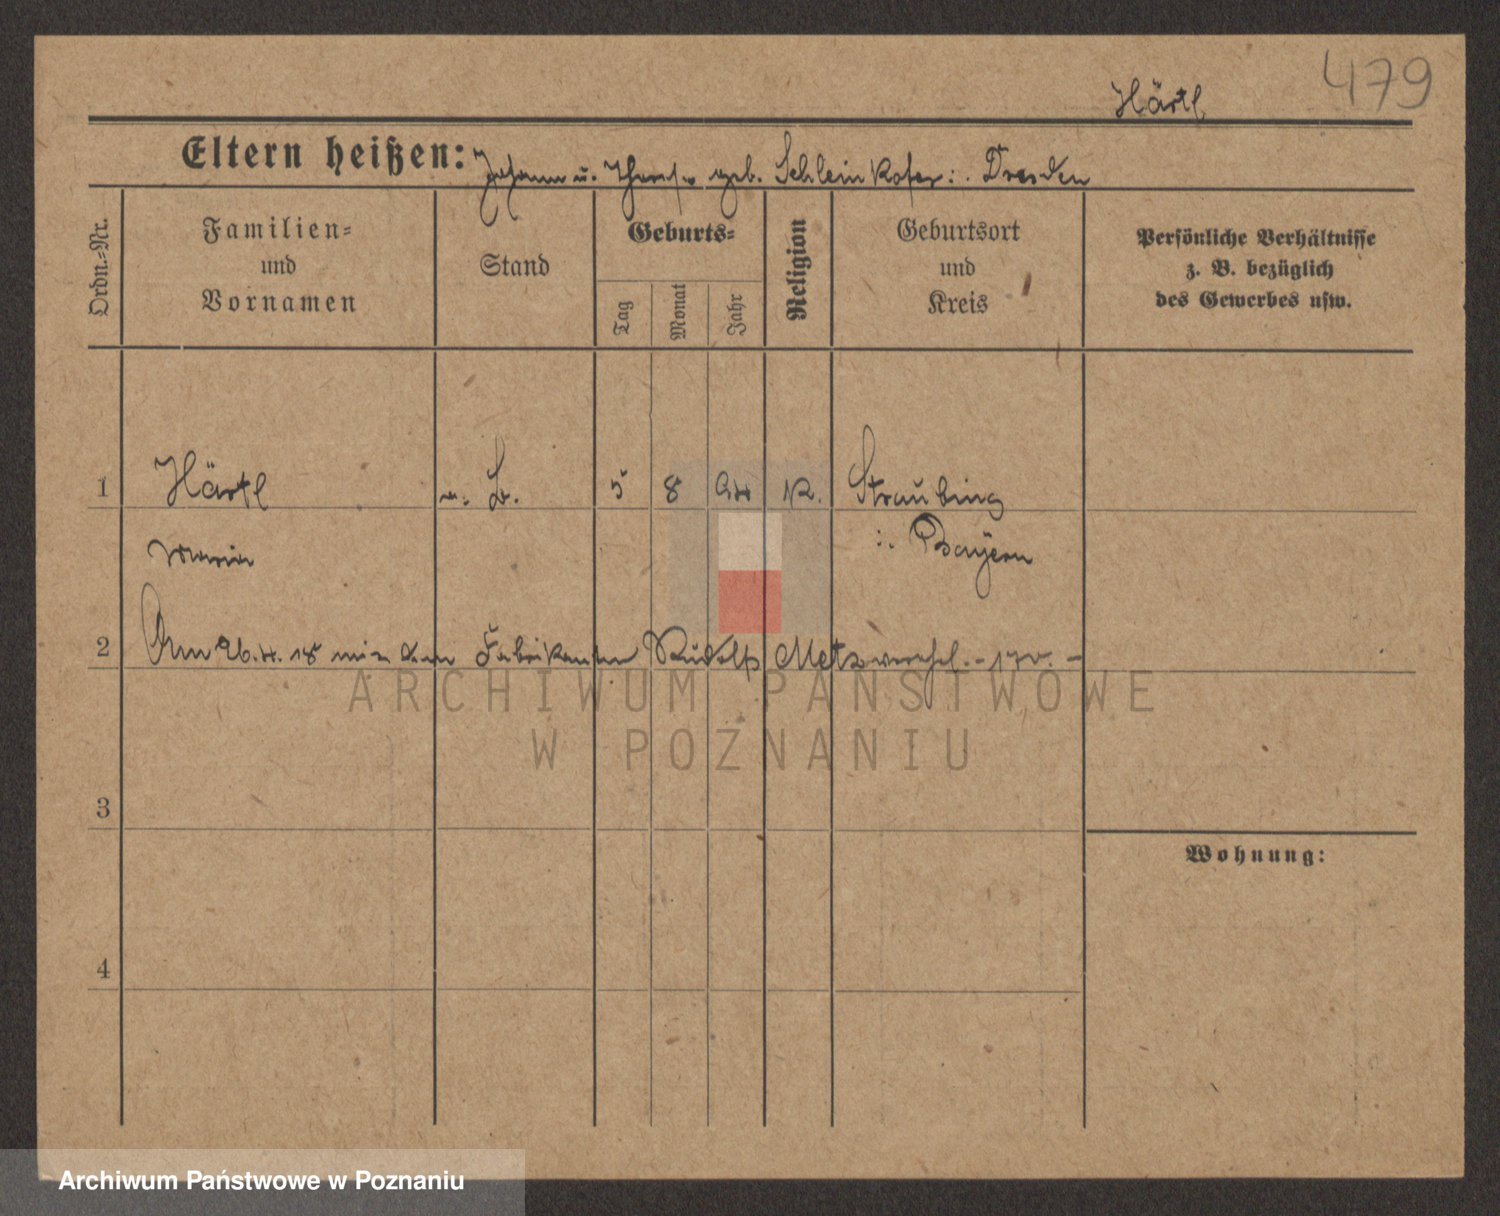 479
Härtl
Eltern heißen: Johann u. Therese geb. Schleinkofer: Dresden
Ordn.-Nr.
Familien-
und
Vornamen
Stand
Geburts-
Tag
Monat
Jahr
Religion
Geburtsort
und
Kreis
Persönliche Verhältnisse
z. B. bezüglich
des Gewerbes usw.
1 Härtl 5 8 K. Straubing
Maria i. Bayern
2 Am 26.4.18 mit dem Fabrikanten Rudolf Metz verehel.
ARCHIWUM PAŃSTWOWE
W POZNANIU
3
Wohnung:
4
Archiwum Państwowe w Poznaniu